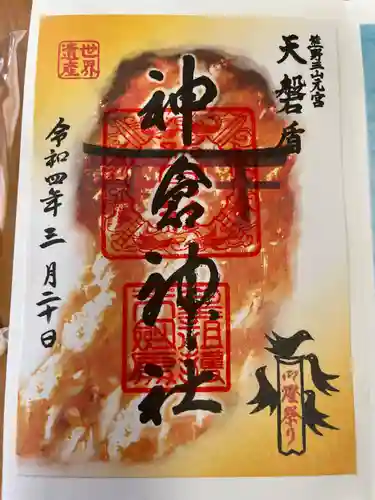 熊野三山元宮
天磐盾
神倉神社
世界
遺産
令和四年三月二十日
御燈祭り